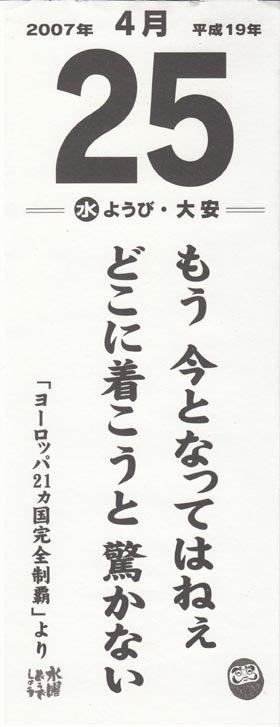 2007年 4月 平成19年
25
水 ようび・大安
もう 今となってはねぇ
どこに着こうと 驚かない
「ヨーロッパ21ヵ国完全制覇」より
水曜
どうで
しょう